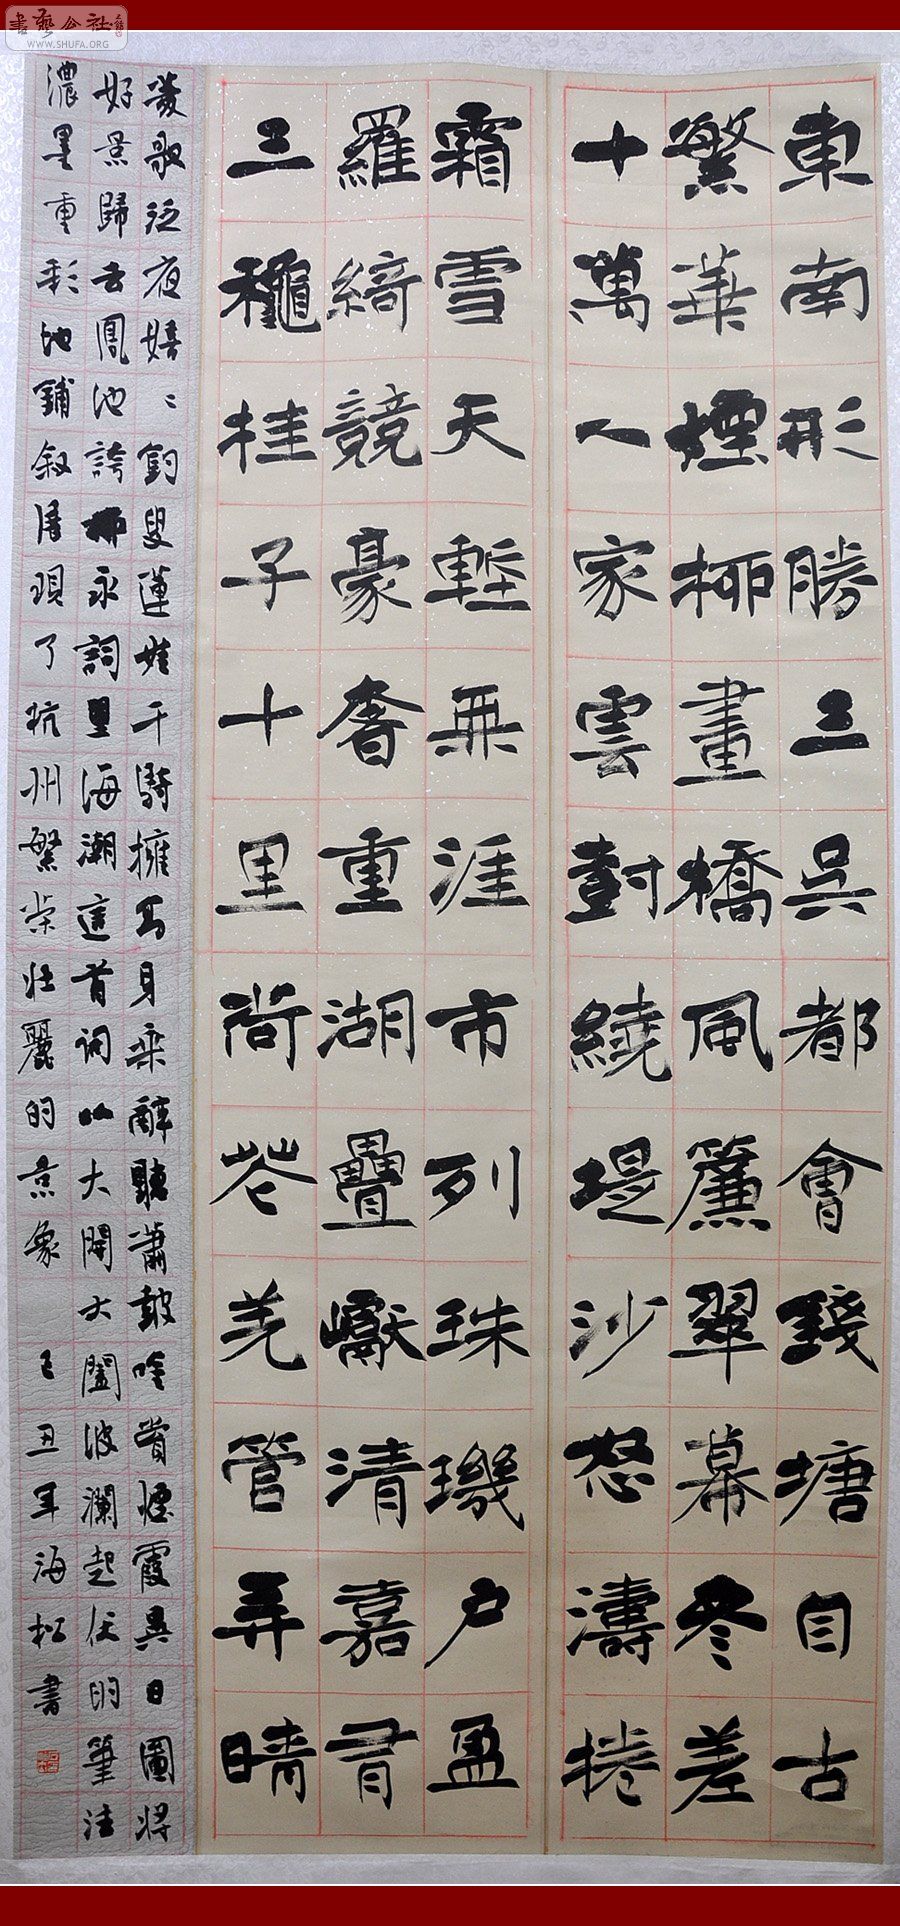 書藝公社
WWW.SHUFA.ORG
東南形勝三吳都會錢塘自古
繁華煙柳畫橋風簾翠幕參差
十萬人家雲尌繞堤沙怒濤捲
霜雪天塹無涯市列珠璣戶盈
羅綺競豪奢重湖疊巘清嘉有
三穐桂子十里荷花羌管弄晴
菱歌泛夜嬉々釣叟蓮娃千騎擁高牙乘醉聽簫鼓吟賞煙霞異日圖將
好景歸去鳳池誇柳永詞望海潮這首詞以大開大闔波瀾起伏的筆法
濃墨重彩地鋪敘展現了杭州繁榮壯麗的景象 己丑年海松書